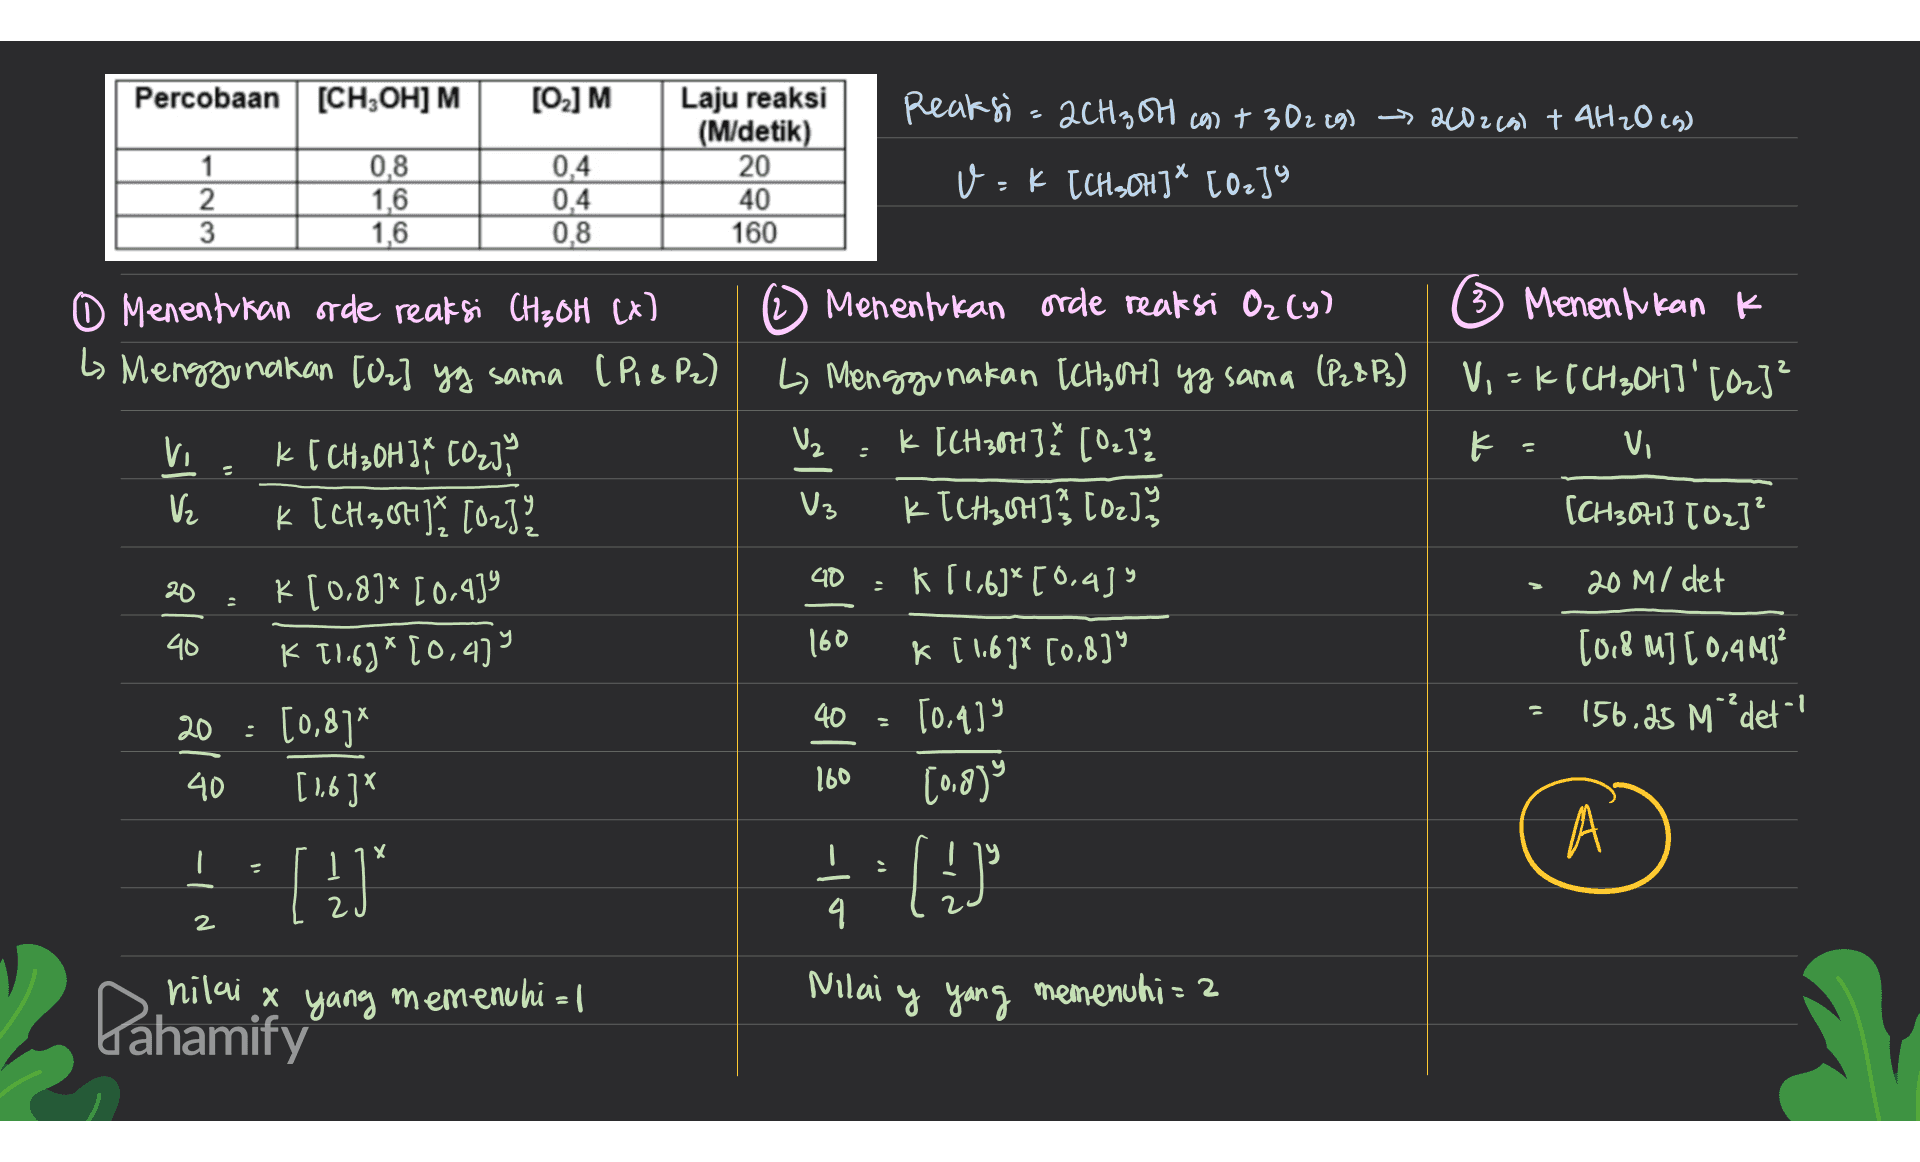 Percobaan [CH₃OH] M [O₂] M Laju reaksi (M/detik)
1 0,8 0,4 20
2 1,6 0,4 40
3 1,6 0,8 160
Reaksi = 2CH₃OH (g) + 3O₂ (g) → 2CO₂ (g) + 4H₂O (g)
V = K [CH₃OH]ˣ [O₂]ʸ
① Menentukan orde reaksi CH₃OH (x)
↳ Menggunakan [O₂] yg sama (P₁ & P₂)
V₁/V₂ = K [CH₃OH]₁ˣ [O₂]₁ʸ / K [CH₃OH]₂ˣ [O₂]₂ʸ
20/40 = K [0,8]ˣ [0,4]ʸ / K [1.6]ˣ [0,4]ʸ
20/40 = [0,8]ˣ / [1,6]ˣ
1/2 = [1/2]ˣ
nilai x yang memenuhi = 1
② Menentukan orde reaksi O₂ (y)
↳ Menggunakan [CH₃OH] yg sama (P₂ & P₃)
V₂/V₃ = K [CH₃OH]₂ˣ [O₂]₂ʸ / K [CH₃OH]₃ˣ [O₂]₃ʸ
40/160 = K [1,6]ˣ [0,4]ʸ / K [1.6]ˣ [0,8]ʸ
40/160 = [0,4]ʸ / [0,8]ʸ
1/4 = [1/2]ʸ
Nilai y yang memenuhi = 2
③ Menentukan K
V₁ = K [CH₃OH]¹ [O₂]²
K = V₁ / [CH₃OH] [O₂]²
= 20 M/det / [0,8 M] [0,4 M]²
= 156,25 M⁻² det⁻¹
A
Pahamify